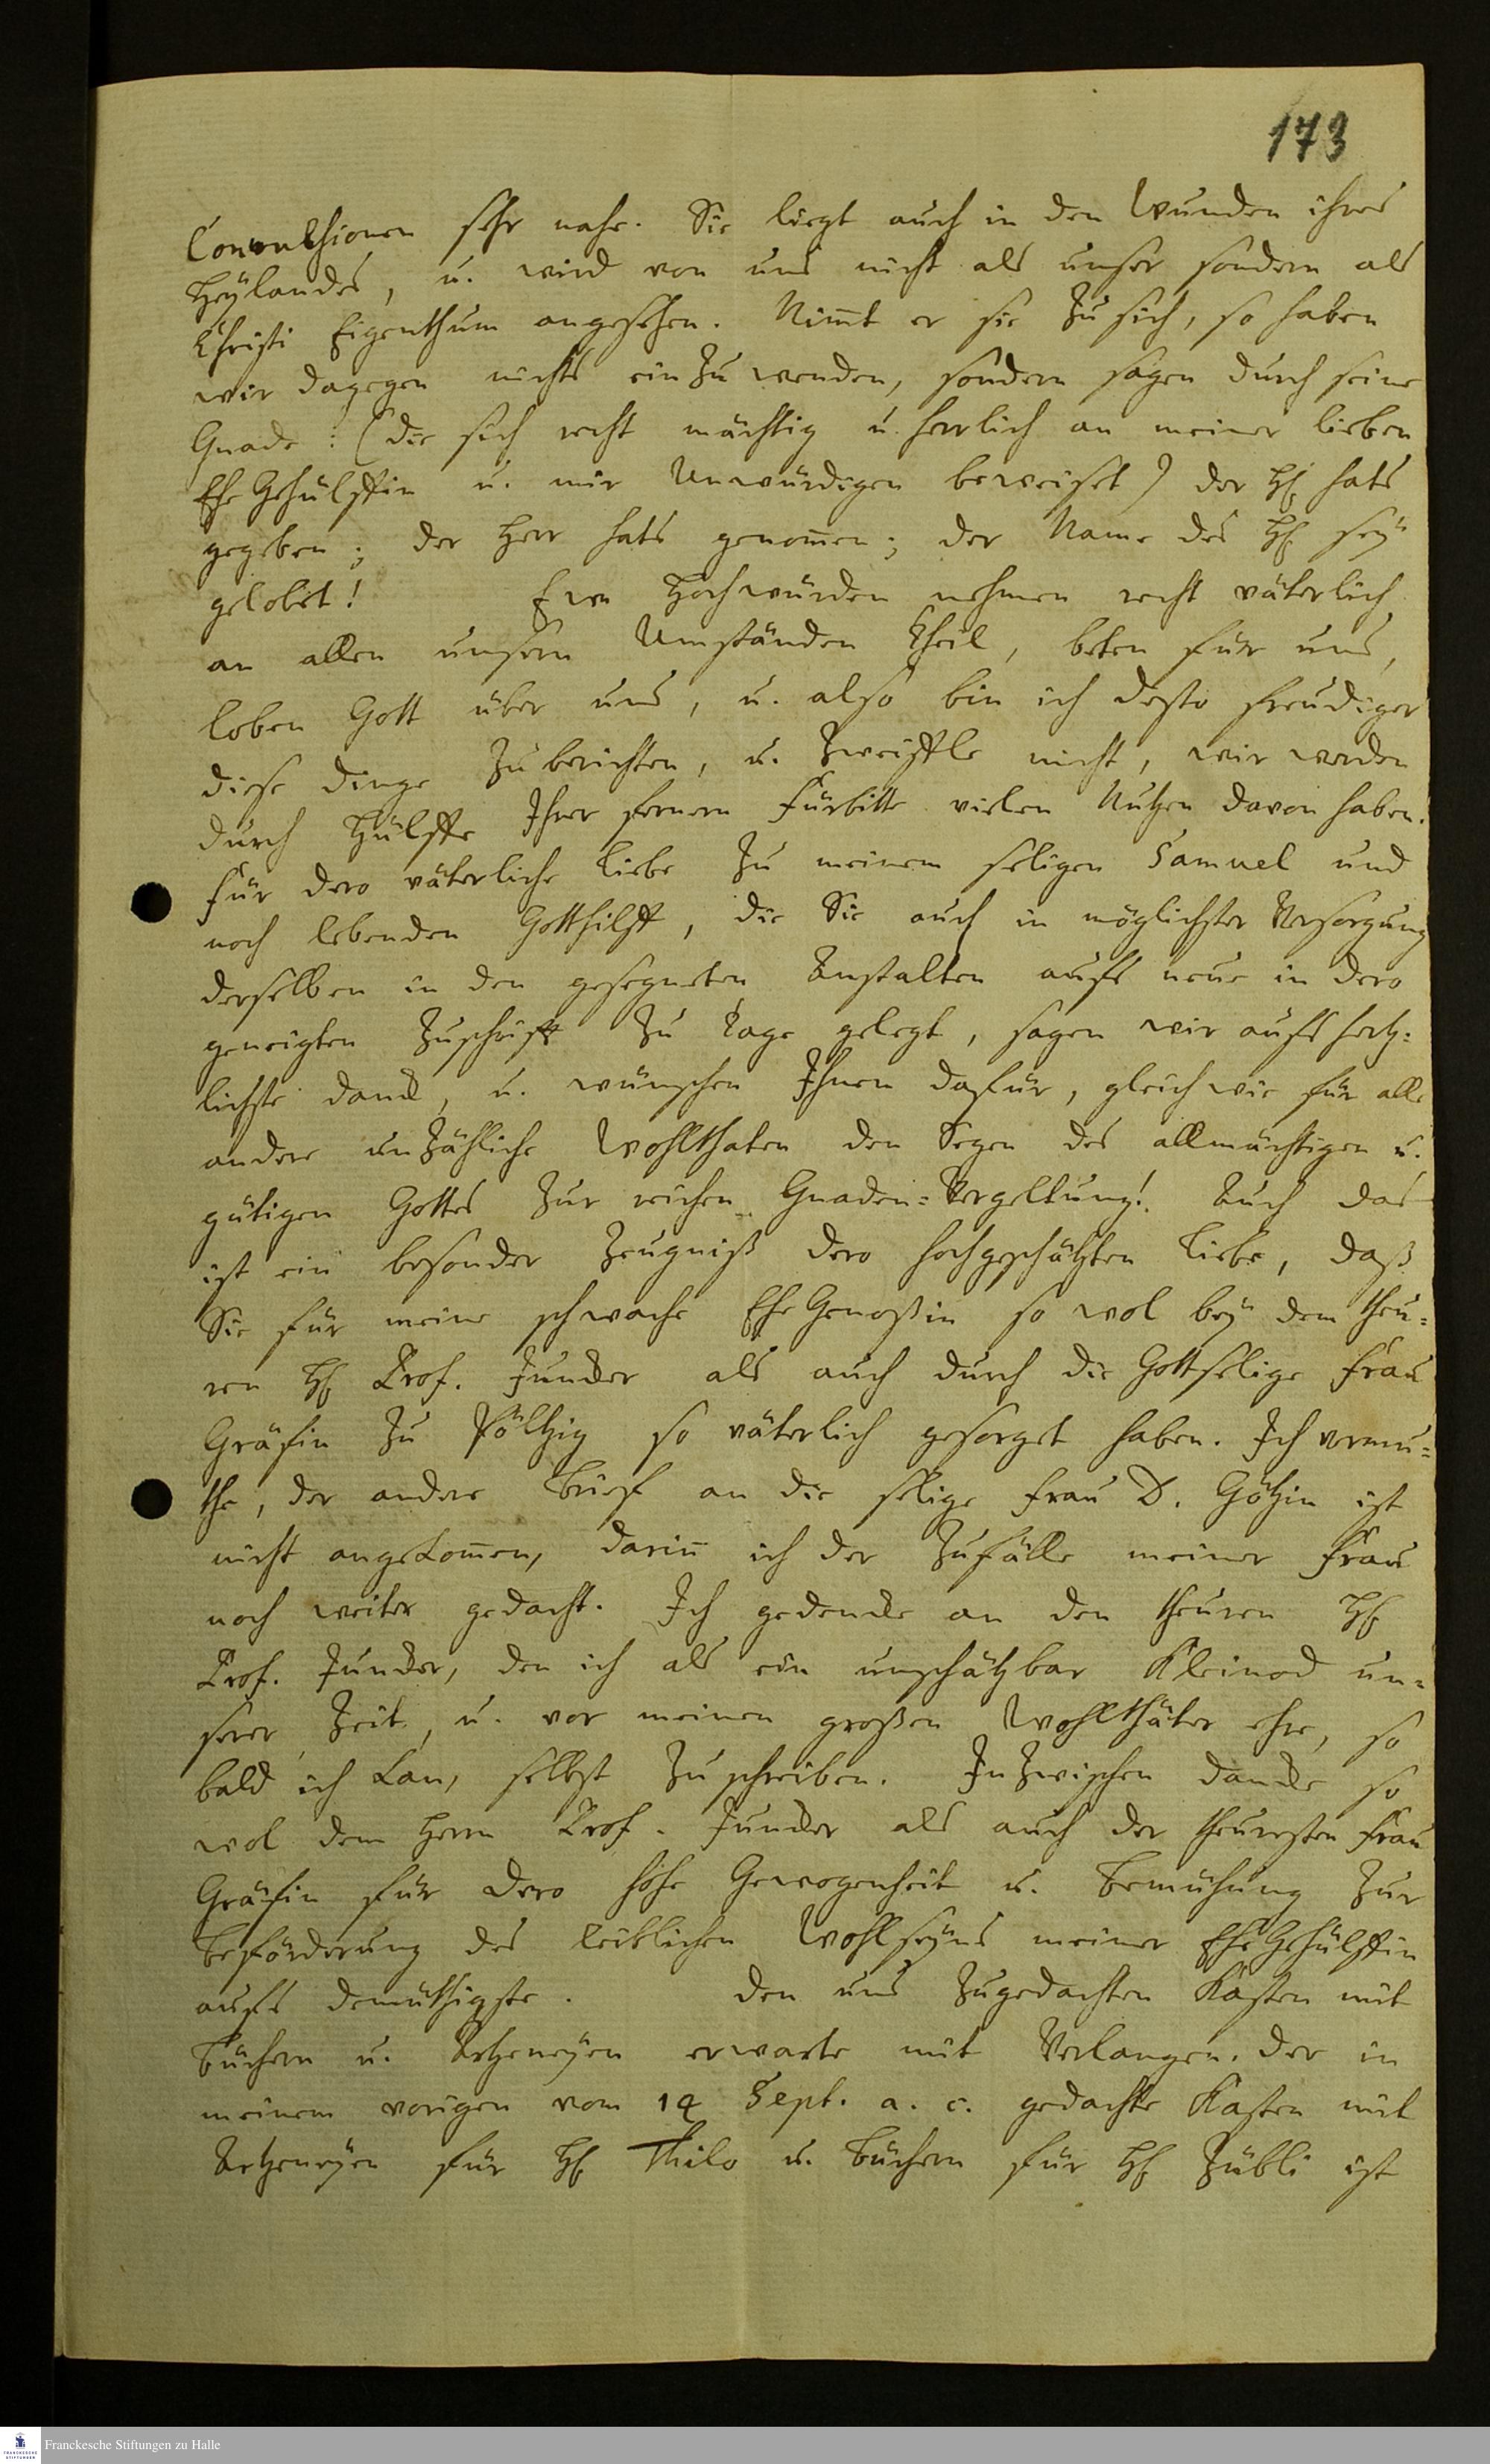 173
Convulsionen sehr nahe. Sie liegt auch in den Wunden ihres
Heylandes, u. wird von uns nicht als unser sondern als
Christi Eigenthum angesehen. Nim̄t er sie zu sich, so haben
wir dagegen nichts ein zu wenden, sondern sagen durch seine
Gnade: (die sich recht mächtig u. herrlich an meiner lieben
Ehe Gehülffin u. mir Unwürdigen beweiset) der H. hats
gegeben; der Herr hats genom̄en; der Name des H. sey
gelobet! Ewr Hochwürden nehmen recht väterlich
an allen unsern Umständen theil, beten für uns,
loben Gott über uns, u. also bin ich desto freudiger
diese dinge zu berichten, u. zweiffle nicht, wir werden
durch Hülffe Ihrer fernern Fürbitte vielen Nutzen davon haben.
Für dero väterliche Liebe zu meinem seligen Samuel und
noch lebenden Gotthilff, die Sie auch in möglichster Versorgung
derselben in den gesegneten Anstalten aufs neue in dero
geneigten Zuschrifft zu tage gelegt, sagen wir aufs hertz-
lichste danck, u. wünschen Ihnen dafür, gleich wie für alle
andere unzähliche Wohlthaten den Segen des allmächtigen u.
gütigen Gottes zur reichen Gnaden-Vergeltung! Auch das
ist ein besonder Zeugniß dero hochgeschätzten Liebe, daß
Sie für meine schwache Ehe Genoßin so wol bey dem theu-
ren H. Prof. Juncker als auch durch die Gottselige Frau
Gräfin zu Pöltzig so väterlich gesorget haben. Ich vermu-
the, der andere Brief an die selige Frau D. Götzin ist
nicht angekom̄en, darin̄ ich der Zufälle meiner Frau
noch weiter gedacht. Ich gedencke an den theuren H.
Prof. Juncker, den ich als ein unschätzbar Kleinod un-
serer Zeit, u. vor meinen großen Wohlthäter ehre, so
bald ich kan, selbst zu schreiben. Inzwischen dancke so
wol dem Herrn Prof. Juncker als auch der theuresten Frau
Gräfin für dero hohe Gewogenheit u. Bemühung zur
Beförderung des leiblichen Wohlseyns meiner Ehe Gehülffin
aufs demüthigste. Den uns zugedachten Kasten mit
Büchern u. Artzeneyen erwarte mit Verlangen. Der in
meinem vorigen vom 14 Sept. a. c. gedachte Kasten mit
Artzeneyen für H. Thilo u. Büchern für H. Zübli ist
Franckesche Stiftungen zu Halle